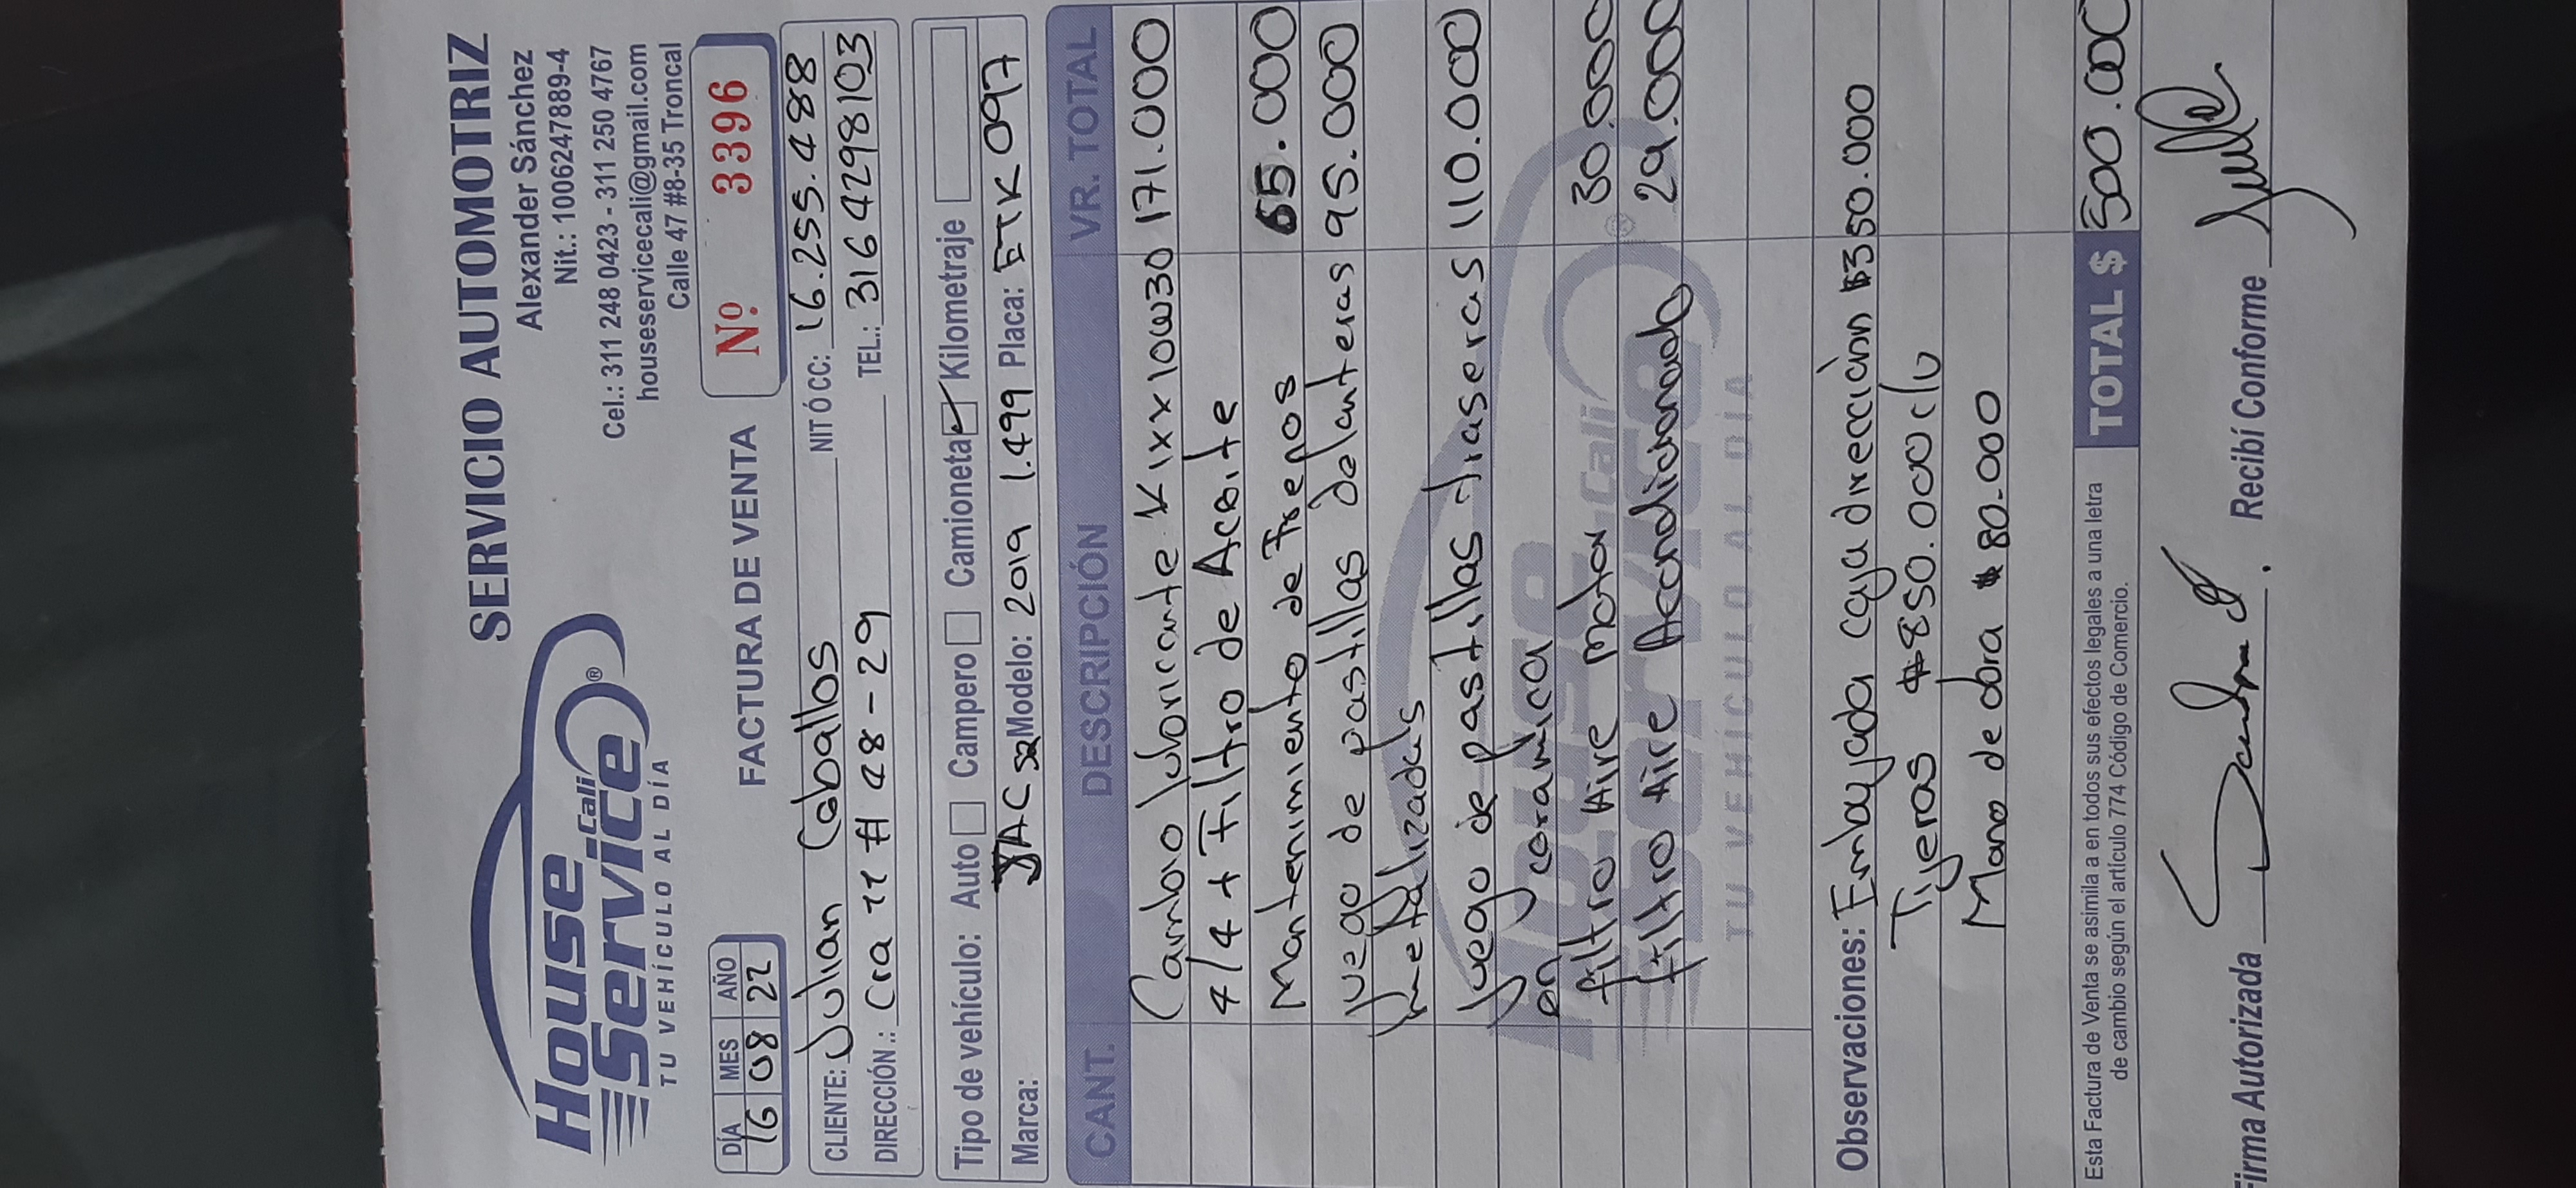 House
Service Cali ®
TU VEHÍCULO AL DÍA
SERVICIO AUTOMOTRIZ
Alexander Sánchez
Nit.: 1006247889-4
Cel.: 311 248 0423 - 311 250 4767
houseservicecali@gmail.com
Calle 47 #8-35 Troncal
DÍA MES AÑO
16 08 22
FACTURA DE VENTA
Nº 3396
CLIENTE: Julian Ceballos NIT Ó CC: 16.255.488
DIRECCIÓN.: Cra # 48-29 TEL.: 3164298103
Tipo de vehículo: Auto Campero Camioneta ✓ Kilometraje
Marca: JAC S2 Modelo: 2019 1.499 Placa: 097
CANT. DESCRIPCIÓN VR. TOTAL
Cambio lubricante Kixx 10W30 171.000
4/4 + Filtro de Aceite
Mantenimiento de Frenos 65.000
Juego de pastillas delanteras 95.000
metalizadas
Juego de pastillas traseras 110.000
en ceramica
filtro Aire Motor 30.000
filtro Aire Acondicionado 29.000
House
Service Cali ®
TU VEHÍCULO AL DÍA
Observaciones: Embujada caja dirección $350.000
Tijeras $850.000 c/u
Mano de obra $80.000
Esta Factura de Venta se asimila a en todos sus efectos legales a una letra
de cambio según el artículo 774 Código de Comercio.
TOTAL $ 500.000
Firma Autorizada
Recibí Conforme